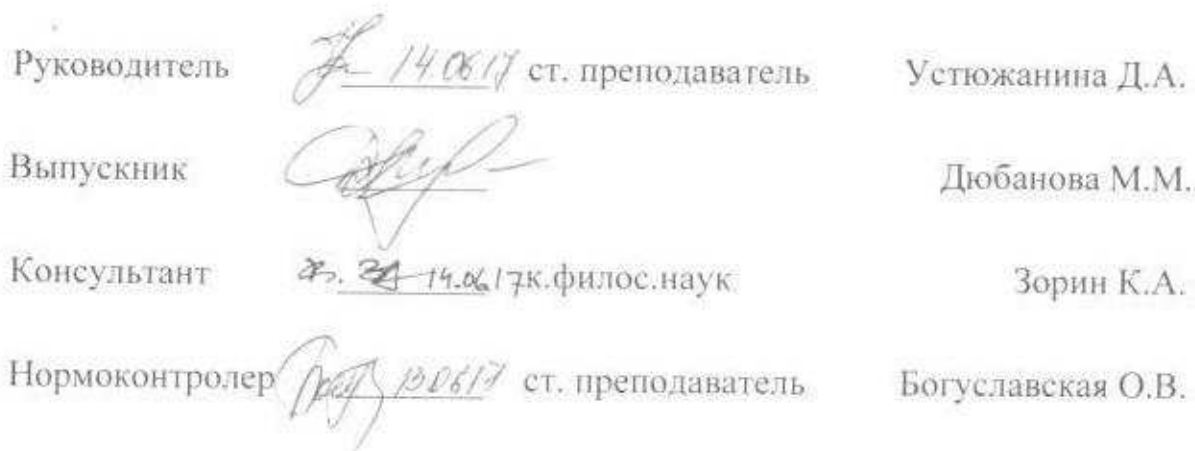 Руководитель 14.06.17 ст. преподаватель Устюжанина Д.А.
Выпускник Дюбанова М.М.
Консультант 14.06.17 к.филос.наук Зорин К.А.
Нормоконтролер 13.06.17 ст. преподаватель Богуславская О.В.